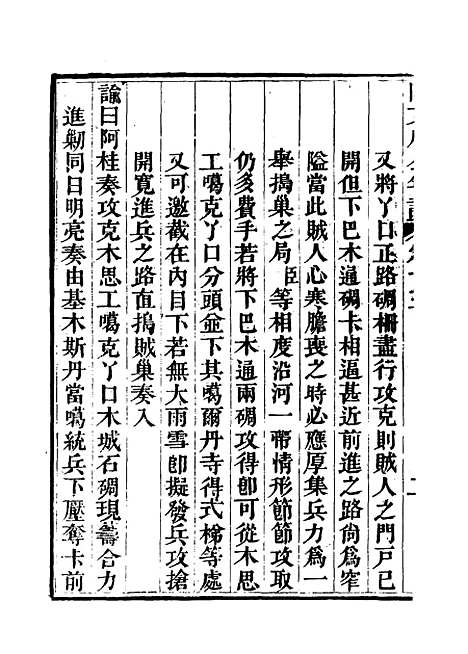 又將丫口正路碉柵盡行攻克則賊人之門戸已
開但下巴木通碉卡相逼甚近前進之路尙爲窄
隘當此賊人心寒膽喪之時必應厚集兵力爲一
舉搗巢之局臣等相度沿河一帶情形節節攻取
仍多費手若將下巴木通兩碉攻得卽可從木思
工噶克丫口分頭竝下其噶爾丹寺得式梯等處
又可邀截在內目下若無大雨雪卽擬發兵攻搶
開寬進兵之路直搗賊巢奏入
諭曰阿桂奏攻克木思工噶克丫口木城石碉現籌合力
進勦同日明亮奏由基木斯丹當噶統兵下壓奪卡前